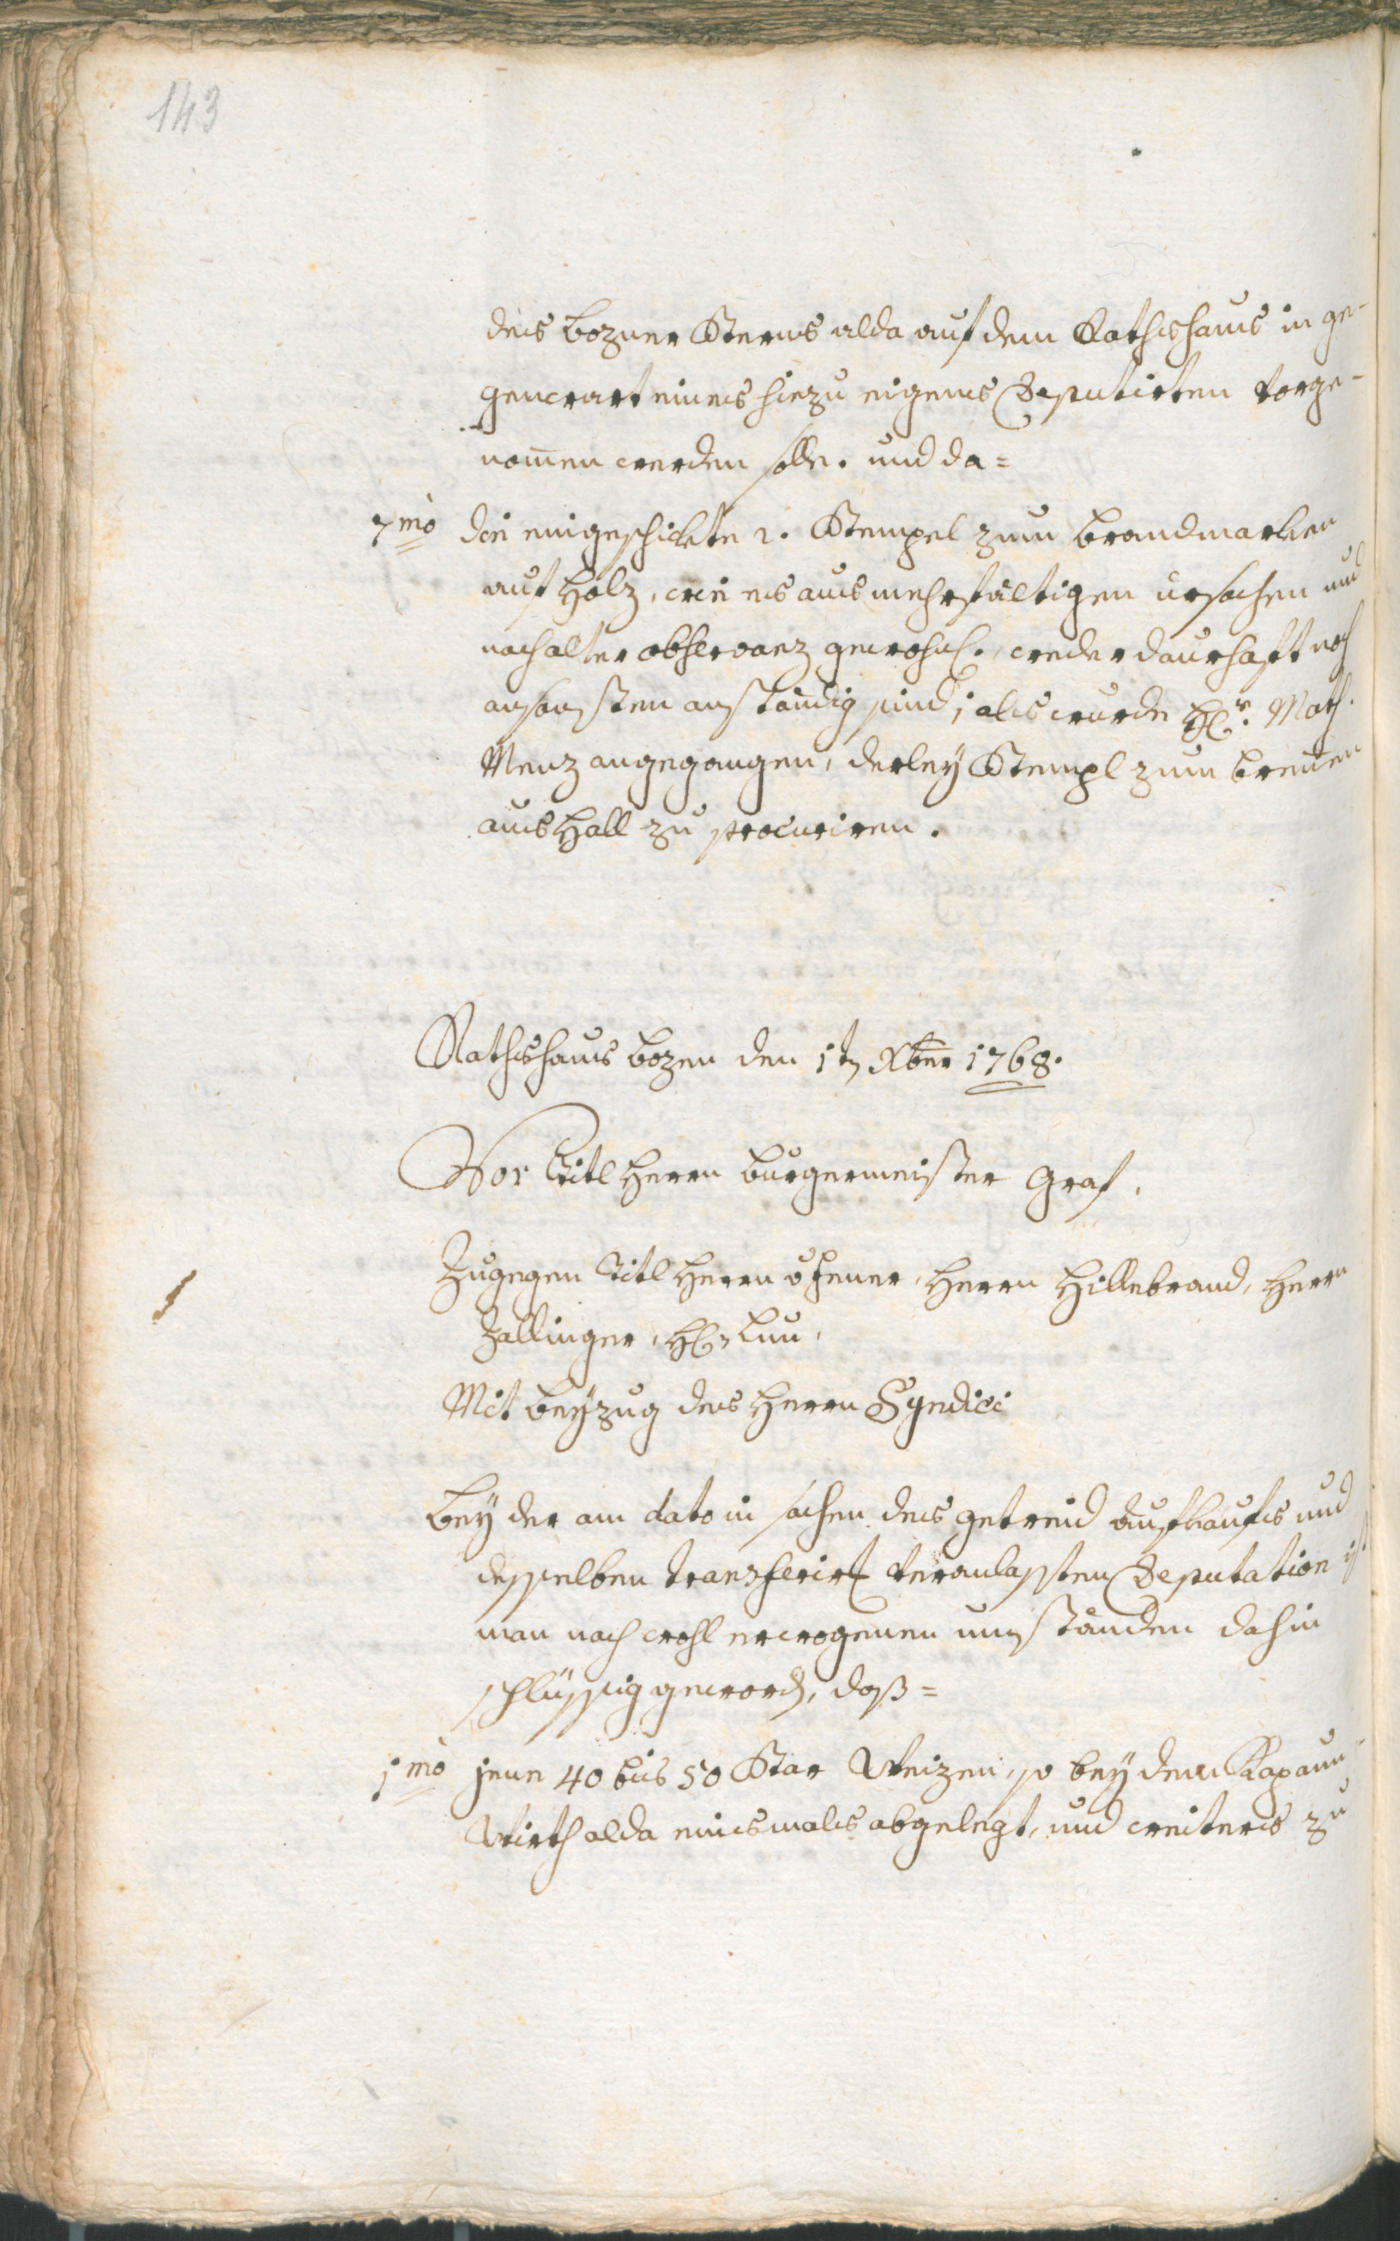 143
deis Bozner Sterns alda auf dem Rathshaus in ge-
genwart eines hiezu eigens Deputirten vorge-
nom̄en werden solle. und da=
7mò die eingeschickte 2. Stempel zum Brandmarken
auf Holz, wie es aus mehrfältigen ursachen und
nach alter observanz gewohnl. weder daurhaft noch
ansonsten anständig sind; als wurde H:r Math.
Menz angegangen, derley Stempl zum bren̄en
aus Hall zu procuriren.
Rathshaus Bozen den 1tn Xber 1768.
Vor Titl Herrn Burgermeister Graf,
Zugegen Titl Herrn v Zeuner, Herrn Hillebrand, Herrn
Zallinger, H:
Mit Beyzug des Herrn Syndici
Bey der am dato in sachen des getreid Aufkaufs und
desselben transferirt veranlassten Deputation ist
man nach wohl erwogenen umständen dahin
schlüssig gewordn, daß=
1mò jene 40 bis 50 Star Weizen, so bey dem Kapaun-
Wirth alda einsmals abgelegt, und weiters zu